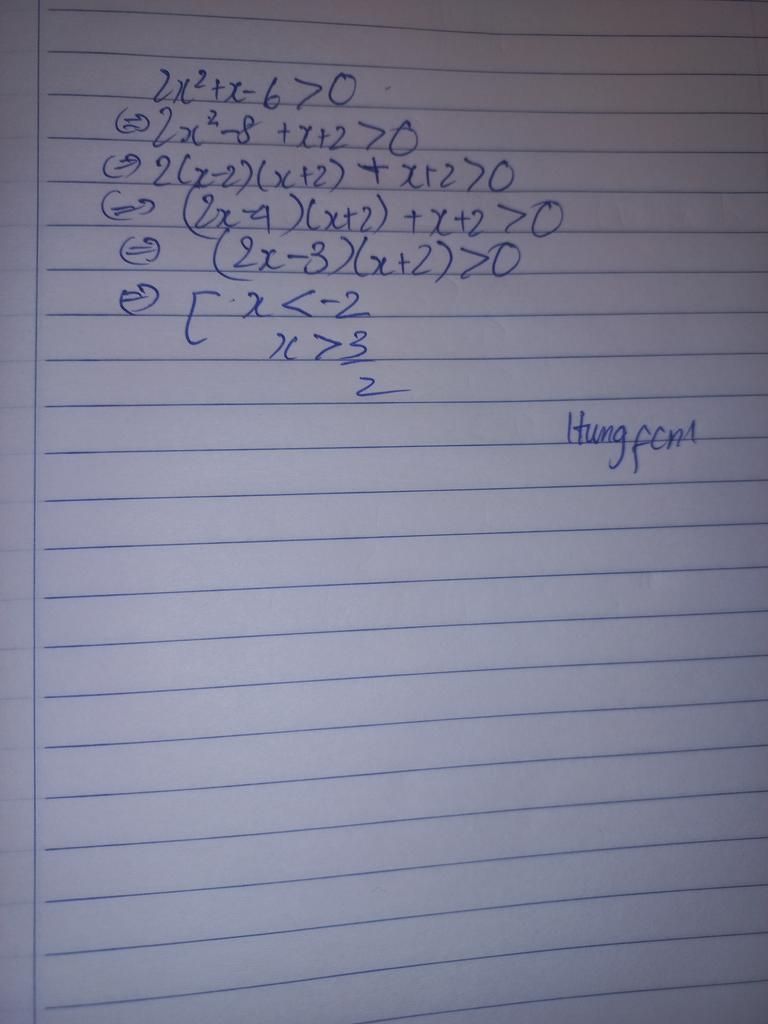 2x²+x-6>0
⇔2x²-8 +x+2>0
⇔ 2(x-2)(x+2) + x+2>0
⇔ (2x-4)(x+2) +x+2>0
⇔ (2x-3)(x+2)>0
⇔ [ x<-2
x>3/2
Hungfcm1